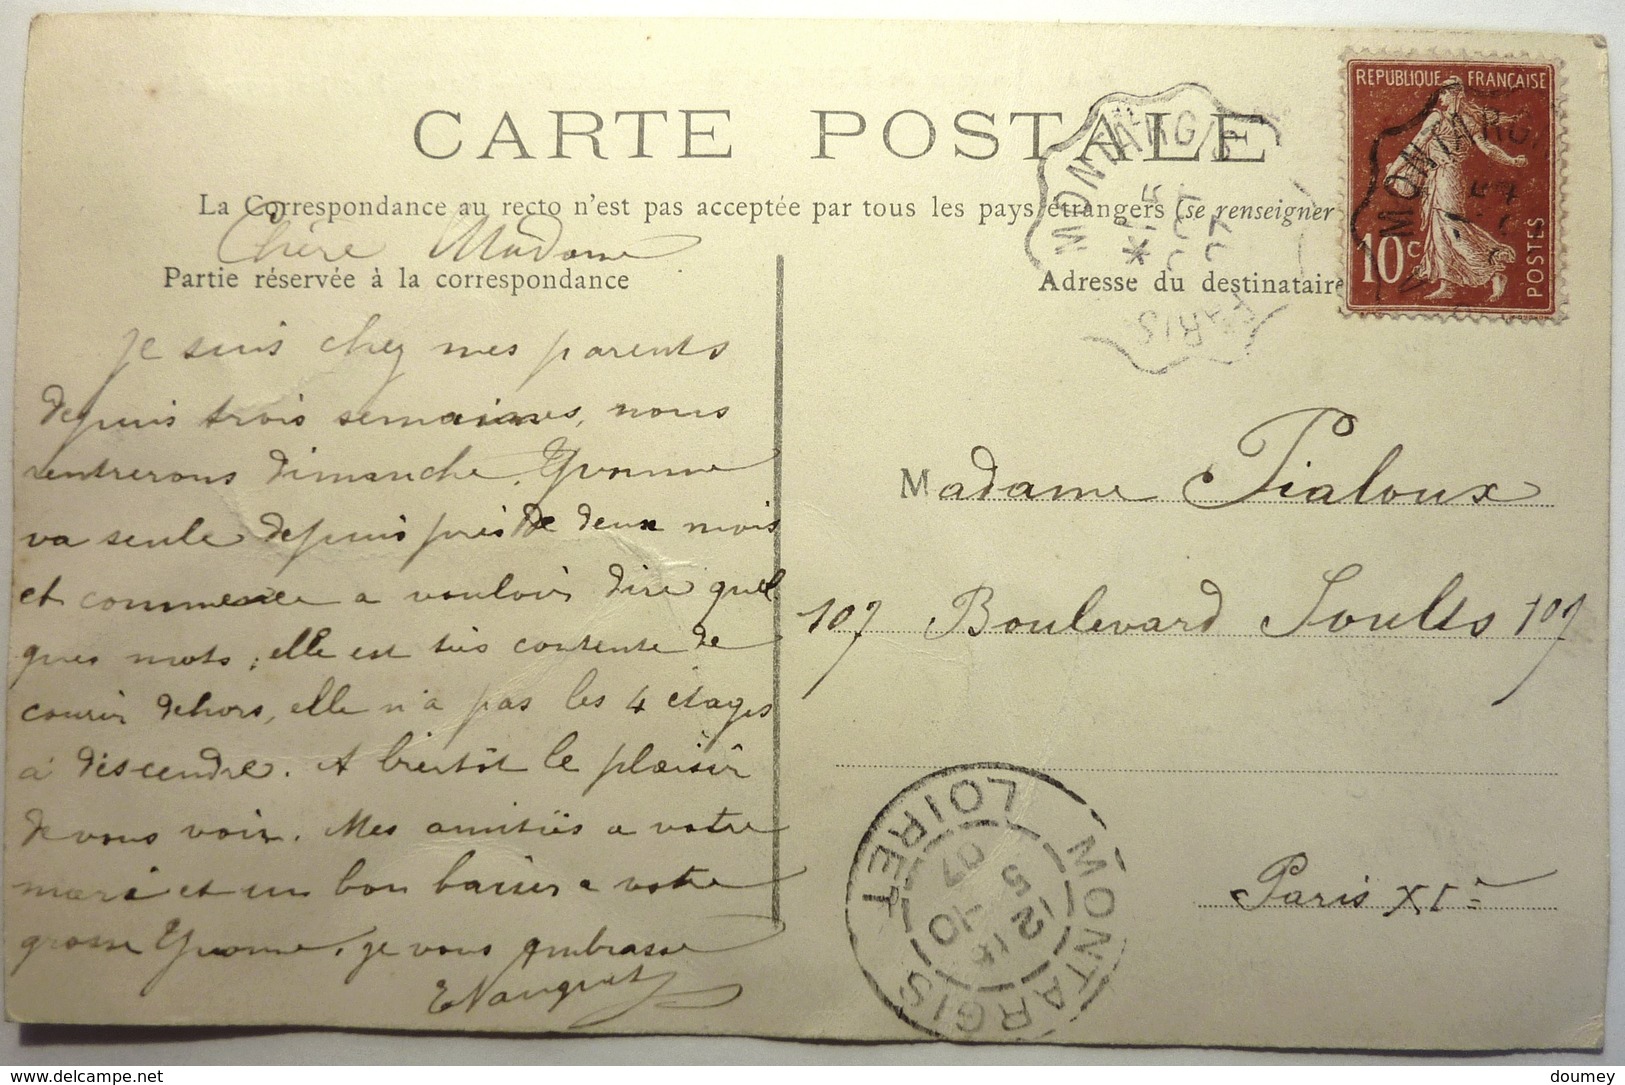 RÉPUBLIQUE FRANÇAISE
10c
POSTES
CARTE POSTALE
La Correspondance au recto n'est pas acceptée par tous les pays étrangers (se renseigner
Chère Madame
Partie réservée à la correspondance
Adresse du destinataire
MONTARGIS
PARIS
MONTARGIS
je suis chez mes parents
depuis trois semaines, nous
rentrerons Dimanche. Yvonne
va seule depuis près de deux mois
et commence a vouloir dire quel
ques mots, elle est très contente de
courir dehors, elle n'a pas les 4 etages
à descendre. A bientôt le plaisir
de vous voir. Mes amitiés a votre
mari et un bon baiser a votre
grosse Yvonne. je vous embrasse
ENauquet
Madame Pialoux
107 Boulevard Soults 107
Paris XIe
MONTARGIS
LOIRET
5 -10
07
doumey